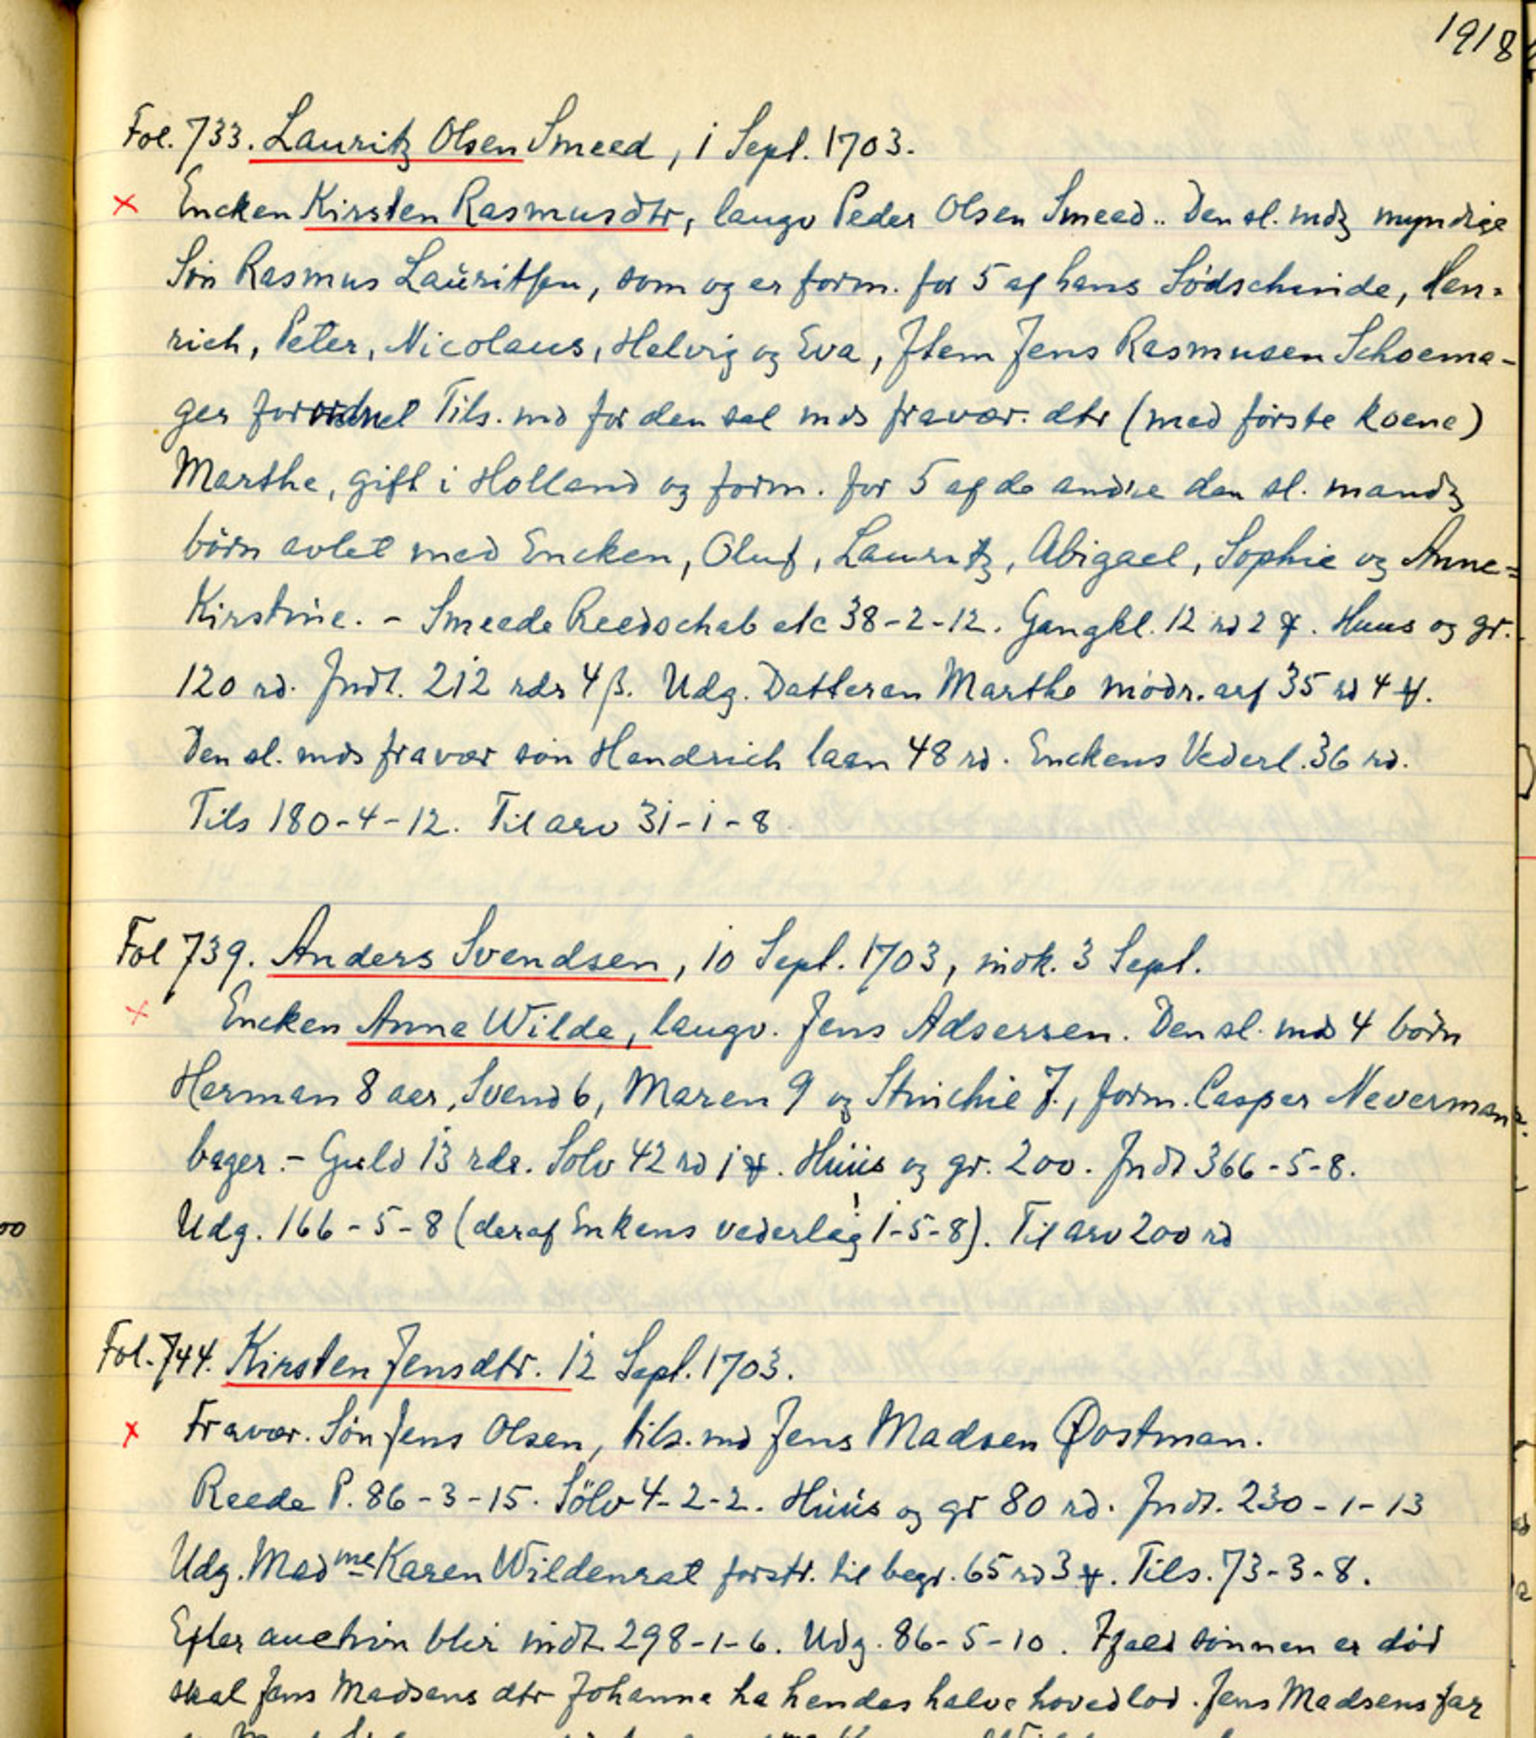 1918
Fol. 733. Lauritz Olsen Smeed, 1 Sept. 1703.
x Encken Kirsten Rasmusdtr, laugv Peder Olsen Smeed.. Den sl. mdz myndige
Søn Rasmus Lauritsen, som og er form. for 5 af hans Södschinde, Hen-
rich, Peter, Nicolaus, Helvig og Eva, Item Jens Rasmusen Schoema-
ger forordnet Tils. md for den sal mds fravær. dtr (med første koene)
Marthe, gift i Holland og form. for 5 af de andre den sl. mandz
børn avlet med Encken, Oluf, Lauritz, Abigael, Sophie og Anne=
Kirstine. - Smeede Reedschab etc 38-2-12. Gangkl. 12 rd 2 ℔. Huus og gr.
120 rd. Indt. 212 rdr 4 β. Udg. Datteren Marthe mödr. arf 35 rd 4 ℔.
Den sl. mds fravær søn Hendrich laan 48 rd. Enckens Vederl. 36 rd.
Tils 180-4-12. Til arv 31-1-8
Fol 739. Anders Svendsen, 10 Sept. 1703, indk. 3 Sept.
x Encken Anne Wilde, laugv. Jens Adsersen. Den sl. mds 4 børn
Herman 8 aar, Svend 6, Maren 9 og Stinchie 7., form. Casper Neverman
bager. - Guld 13 rdr. Sölv 42 rd 1 ℔. Huus og gr. 200. Indt 366-5-8.
Udg. 166-5-8 (deraf Enkens vederlag! 1-5-8). Til arv 200 rd
Fol. 744. Kirsten Jensdtr. 12 Sept. 1703.
x Fravær. Søn Jens Olsen, tils. md Jens Madsen Øostman.
Reede P. 86-3-15. Sölv 4-2-2. Huus og gr 80 rd. Indt. 230-1-13
Udg. Madme Karen Wildenrat forstr. til begr. 65 rd 3 ℔. Tils. 73-3-8.
Efter auction blir indt 298-1-6. Udg. 86-5-10. Ifald sönnen er död
skal Jens Madsens dtr Johanne ha hendes halve hovedlod. Jens Madsens far